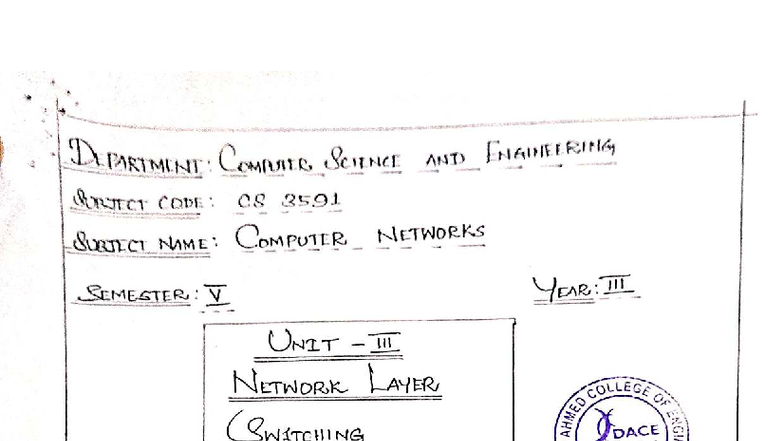 DEPARTMENT: COMPUTER SCIENCE AND ENGINEERING
SUBJECT CODE: CS 3591
SUBJECT NAME: COMPUTER NETWORKS
SEMESTER: V YEAR: III
UNIT - III
NETWORK LAYER
(SWITCHING
AHMED COLLEGE OF ENGI
DACE